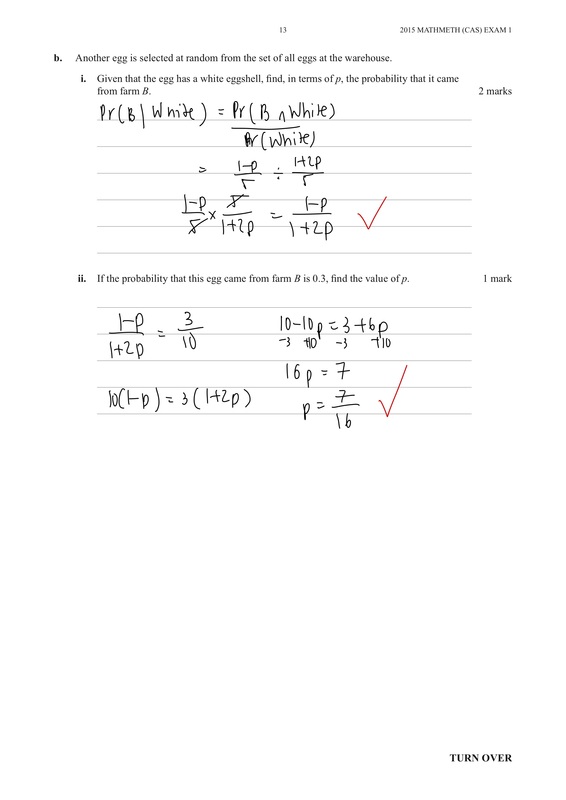 13
2015 MATHMETH (CAS) EXAM 1
b. Another egg is selected at random from the set of all eggs at the warehouse.
i. Given that the egg has a white eggshell, find, in terms of p, the probability that it came
from farm B. 2 marks
Pr(B | White) = Pr(B ∩ White) / Pr(White)
= (1-p)/5 ÷ (1+2p)/5
(1-p)/5 × 5/(1+2p) = (1-p)/(1+2p) ✓
ii. If the probability that this egg came from farm B is 0.3, find the value of p. 1 mark
(1-p)/(1+2p) = 3/10
10(1-p) = 3(1+2p)
10-10p = 3+6p
-3 +10 -3 +10
16p = 7
p = 7/16 ✓
TURN OVER